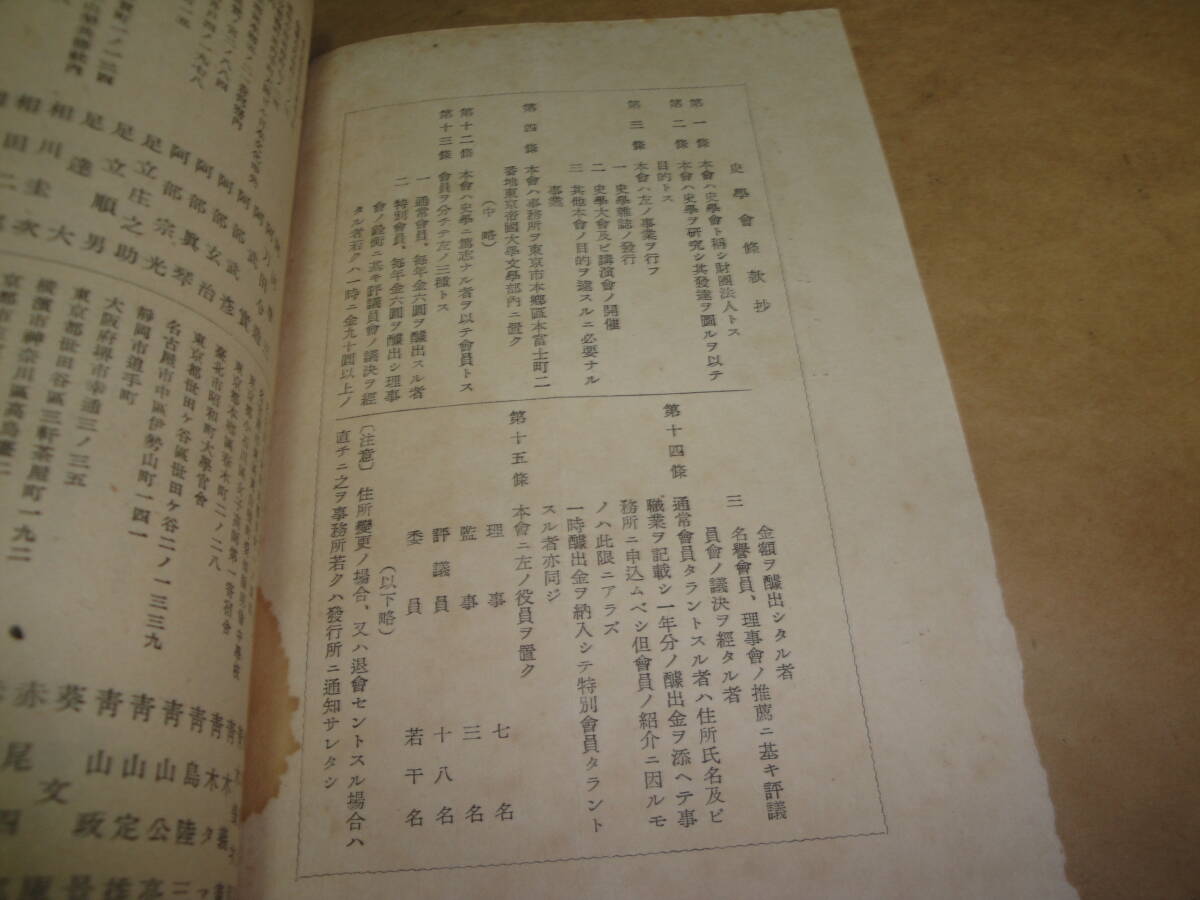 史學會條款抄
第一條 本會ハ史學會ト稱シ財團法人トス
第二條 本會ハ史學ヲ研究シ其發達ヲ圖ルヲ以テ
目的トス
第三條 本會ハ左ノ事業ヲ行フ
一 史學雜誌ノ發行
二 史學大會及ビ講演會ノ開催
三 其他本會ノ目的ヲ達スルニ必要ナル
事業
第四條 本會ハ事務所ヲ東京市本鄕區本富士町二
番地東京帝國大學文學部內ニ置ク
(中略)
第十二條 本會ハ史學ニ篤志ナル者ヲ以テ會員トス
第十三條 會員ヲ分チテ左ノ三種トス
一 通常會員、每年金六圓ヲ醵出スル者
二 特別會員、每年金六圓ヲ醵出シ理事
會ノ銓衡ニ基キ評議員會ノ議決ヲ經
タル者若クハ一時ニ金九十圓以上ノ
金額ヲ醵出シタル者
三 名譽會員、理事會ノ推薦ニ基キ評議
員會ノ議決ヲ經タル者
第十四條 通常會員タラントスル者ハ住所氏名及ビ
職業ヲ記載シ一年分ノ醵出金ヲ添ヘテ事
務所ニ申込ムベシ但會員ノ紹介ニ因ルモ
ノハ此限ニアラズ
一時醵出金ヲ納入シテ特別會員タラント
スル者亦同ジ
第十五條 本會ニ左ノ役員ヲ置ク
理事 七名
監事 三名
評議員 十八名
委員 若干名
(以下略)
〔注意〕 住所變更ノ場合、又ハ退會セントスル場合ハ
直チニ之ヲ事務所若クハ發行所ニ通知サレタシ
足立庄之助
足達順男
相川圭大
臺北市昭和町大學官舍
東京都世田ケ谷區世田ケ谷二ノ一三三九
名古屋市中區伊勢山町一四一
靜岡市道手町
大阪府堺市幸通三ノ三五
東京都世田谷區三軒茶屋町一九二
橫濱市神奈川區高島臺二
靑島陸三
靑山公亮
靑山定雄
靑山政
葵文
赤尾四